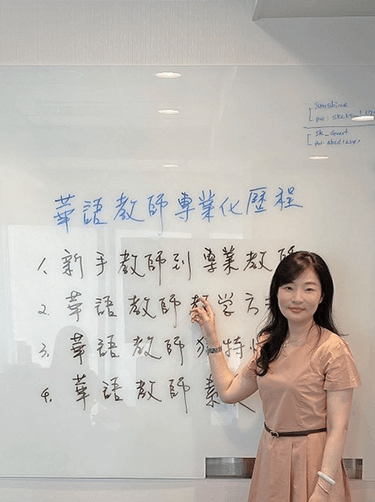 sunshine
sk_guest
華語教師專業化歷程
1. 新手教師到專業教師
2. 華語教師教学方
3. 華語教師獨特
4. 華語教師素